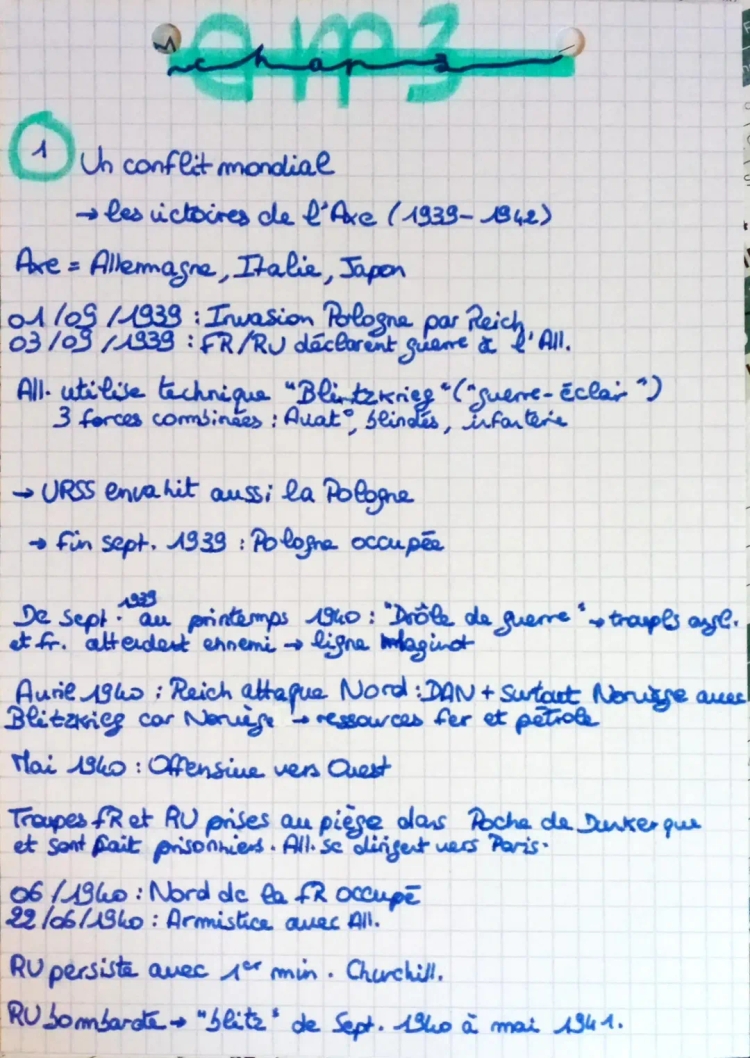 emc
chap 3
1 Un conflit mondial
→ les victoires de l'Axe (1939-1942)
Axe = Allemagne, Italie, Japon
01/09/1939 : Invasion Pologne par Reich
03/09/1939 : FR/RU déclarent guerre à l'All.
All. utilise technique "Blirtzkrieg" ("guerre-éclair")
3 forces combinées : Aviat°, blindés, infanterie
→ URSS envahit aussi la Pologne
→ fin sept. 1939 : Pologne occupée
De sept. 1939 au printemps 1940 : "Drôle de guerre" → troupes angl.
et fr. attendent ennemi → ligne Maginot
Avril 1940 : Reich attaque Nord : DAN + surtout Norvège avec
Blitzkrieg car Norvège → ressources fer et pétrole
Mai 1940 : Offensive vers Ouest
Troupes FR et RU prises au piège dans Poche de Dunkerque
et sont fait prisonniers. All. se dirigent vers Paris.
06/1940 : Nord de la FR occupé
22/06/1940 : Armistice avec All.
RU persiste avec 1er min. Churchill.
RU bombardé → "blitz" de Sept. 1940 à mai 1941.